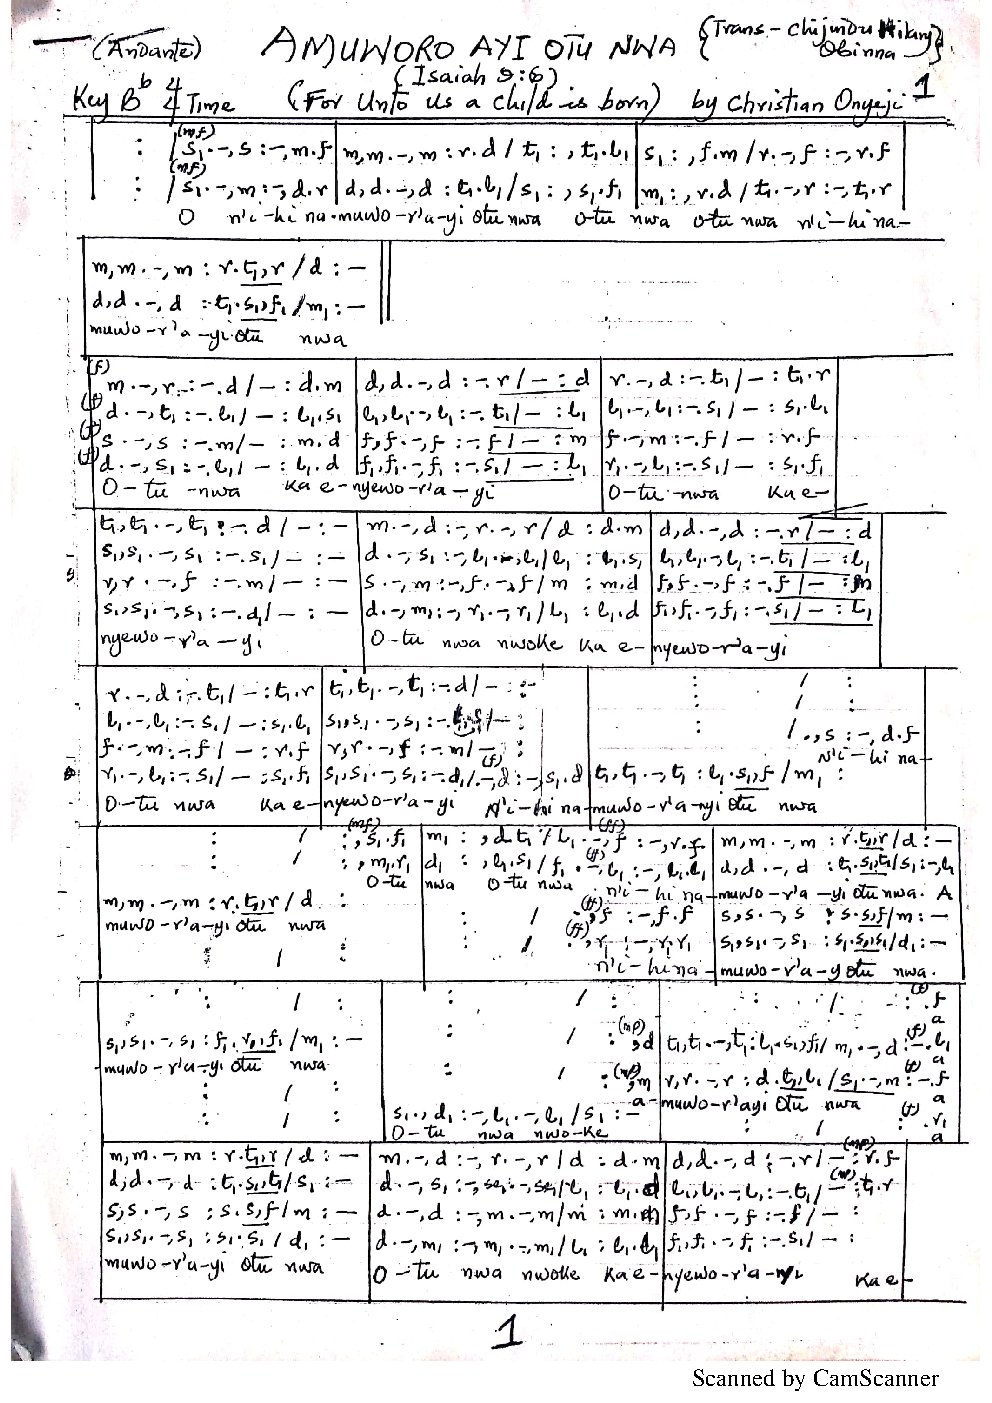 (Andante) AMUWORO AYI OTU NWA {Trans.- Chijindu Hilary Obinna}
(Isaiah 9:6)
Key Bb 4/4 Time (For Unto Us a child is born) by Christian Onyeji 1
(mf)
: /s₁.-,s :-,m.f | m,m.-,m : r.d / t₁ : ,t₁.l₁ | s₁ : ,f.m / r.-,f :-,r.f
(mf)
: /s₁.-,m :-,d.r | d,d.-,d : t₁.l₁ / s₁ : ,s₁.f₁ | m₁ : ,r.d / t₁.-,r :-,t₁.r
O n'i-hi na-muwo-r'a-yi otu nwa o-tu nwa o-tu nwa n'i-hi na-
m,m.-,m : r.t₁,r / d : -
d,d.-,d :t₁.s₁,f₁ / m₁ : -
muwo-r'a-yi otu nwa
(f) m.-,r :-.d / - : d.m | d,d.-,d :-.r / - : d | r.-,d :-.t₁ / - : t₁.r
(f) d.-,t₁ :-.l₁ / - : l₁.s₁ | l₁,l₁.-,l₁ :-.t₁ / - : l₁ | l₁.-,l₁ :-.s₁ / - : s₁.l₁
(f) s.-,s :-.m / - : m.d | f,f.-,f :-.f / - : m | f.-,m :-.f / - : r.f
(f) d.-,s₁ :-.l₁ / - : l₁.d | f₁,f₁.-,f₁ :-.s₁ / - : l₁ | r₁.-,l₁ :-.s₁ / - : s₁.f₁
O-tu -nwa Ka e-nyewo-r'a-yi O-tu -nwa Ka e-
t₁,t₁.-,t₁ :-.d / - : - | m.-,d :-,r.-,r / d : d.m | d,d.-,d :-.r / - : d
s₁,s₁.-,s₁ :-.s₁ / - : - | d.-,s₁ :-,l₁.-,l₁ / l₁ : l₁.s₁ | l₁,l₁.-,l₁ :-.t₁ / - : l₁
r,r.-,f :-.m / - : - | s.-,m :-,f.-,f / m : m.d | f,f.-,f :-.f / - : m
s₁,s₁.-,s₁ :-.d₁ / - : - | d.-,m₁ :-,r₁.-,r₁ / l₁ : l₁.d | f₁,f₁.-,f₁ :-.s₁ / - : l₁
nyewo-r'a-yi O-tu nwa nwoke Ka e-nyewo-r'a-yi
r.-,d :-.t₁ / - : t₁.r | t₁,t₁.-,t₁ :-.d / - : - | : / :
l₁.-,l₁ :-.s₁ / - : s₁.l₁ | s₁,s₁.-,s₁ :- / - : | : / .,s :-,d.f
N'i-hi na-
f.-,m :-.f / - : r.f | r,r.-,f :-.m / - :
(f)
r₁.-,l₁ :-.s₁ / - : s₁.f₁ | s₁,s₁.-,s₁ :-.d₁ / -,d :-,s₁.d | t₁,t₁.-,t₁ : l₁.s₁,f / m₁ :
O-tu nwa Ka e-nyewo-r'a-yi N'i-hi na-muwo-r'a-nyi otu nwa
(mf) (ff)
: / : ,s₁.f₁ | m₁ : ,d.t₁ / l₁.-,f :-,r.f | m,m.-,m : r.t₁,r / d : -
(ff)
: / : ,m₁.r₁ | d₁ : ,l₁.s₁ / f₁.-,l₁ :-,l₁.l₁ | d,d.-,d : t₁.s₁,t₁ / s₁ :-,l₁
O-tu nwa O-tu nwa n'i-hi na-muwo-r'a-yi otu nwa. A
(ff)
m,m.-,m : r.t₁,r / d : | : / ,f :-,f.f | s,s.-,s : s.s,f / m : -
muwo-r'a-yi otu nwa
(ff)
: / : | : / ,r₁ :-,r₁.r₁ | s₁,s₁.-,s₁ : s₁.s₁,s₁ / d₁ : -
n'i-hi na-muwo-r'a-y otu nwa.
(f)
: / : | : / : | : / : .f
a
(mp) (f)
s₁,s₁.-,s₁ : f₁.r₁,f₁ / m₁ : - | : / : ,d | t₁,t₁.-,t₁ : l₁.s₁,f₁ / m₁.-,d :-.l₁
muwo-r'a-yi otu nwa a
(mp) (f)
: / : | : / : ,m | r,r.-,r : d.t₁,l₁ / s₁.-,m :-.f
a-muwo-r'ayi otu nwa a
(f)
: / : | s₁.,d₁ :-,l₁.-,l₁ / s₁ : - | : / : .r₁
O-tu nwa nwo-ke a
(mp)
m,m.-,m : r.t₁,r / d : - | m.-,d :-,r.-,r / d : d.m | d,d.-,d :-,r / - : r.f
(mp)
d,d.-,d : t₁.s₁,t₁ / s₁ : - | d.-,s₁ :-,se₁.-,se₁ / l₁ : l₁.d | l₁,l₁.-,l₁ :-.t₁ / - : t₁.r
s,s.-,s : s.s,f / m : - | d.-,d :-,m.-,m / m : m.m | f,f.-,f :-.f / - :
s₁,s₁.-,s₁ : s₁.s₁ / d₁ : - | d.-,m₁ :-,m₁.-,m₁ / l₁ : l₁.l₁ | f₁,f₁.-,f₁ :-.s₁ / - :
muwo-r'a-yi otu nwa O-tu nwa nwoke Ka e-nyewo-r'a-nyi Ka e-
1
Scanned by CamScanner